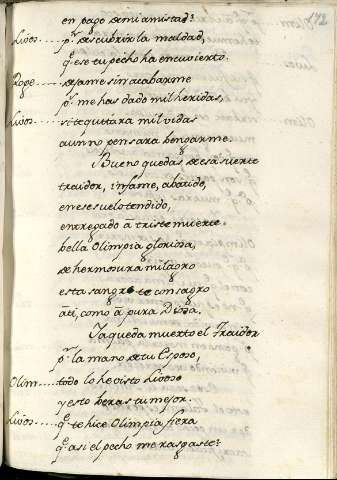 172
en pago de mi amistad?
Livos.... pr. descubrir la maldad,
qe. ese tu pecho ha encuvierto.
Roge.... dejame sin acabarme
pr. me has dado mil heridas,
Livos.... si te quitara mil vidas
aun no pensara bengarme.
Bueno quedas de esa suerte
traidor, infame, abatido,
en ese suelo tendido,
entregado á triste muerte.
bella Olimpia gloriosa,
de hermosura milagro
esta sangre te consagro
a ti, como á pura Diosa.
Ia queda muerto el Traidor
pr. la mano de tu Esposo,
Olim.... todo lo he visto Livoso
y esto beras tu mejor.
Livos.... qe. te hice Olimpia fiera
qe. asi el pecho me rasgaste?